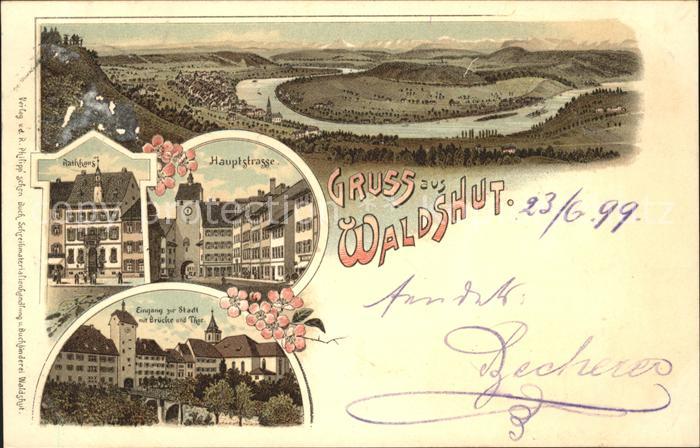 Rathhaus
Hauptstrasse.
GRUSS aus
WALDSHUT.
23/6.99.
Eingang zur Stadt
mit Brücke und Thor.
Becherer
Verlag v. d. R. Philipp'schen Buch, Schreibmaterialienhandlung u. Buchbinderei Waldshut.